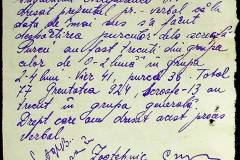 dresat prezentul pr.-verbal că la
data de mai sus s-a făcut
despărțirea purceilor dela scroafe
Purcei au fost trecuți din grupa
celor de 0-2 luni în grupa
2-4 luni. Vier 41, purcea 36. Total
77 Greutatea 924 scroafe-13 au
trecut în grupa generală.
Drept care am dresat acest proces
verbal.
Zootehnic